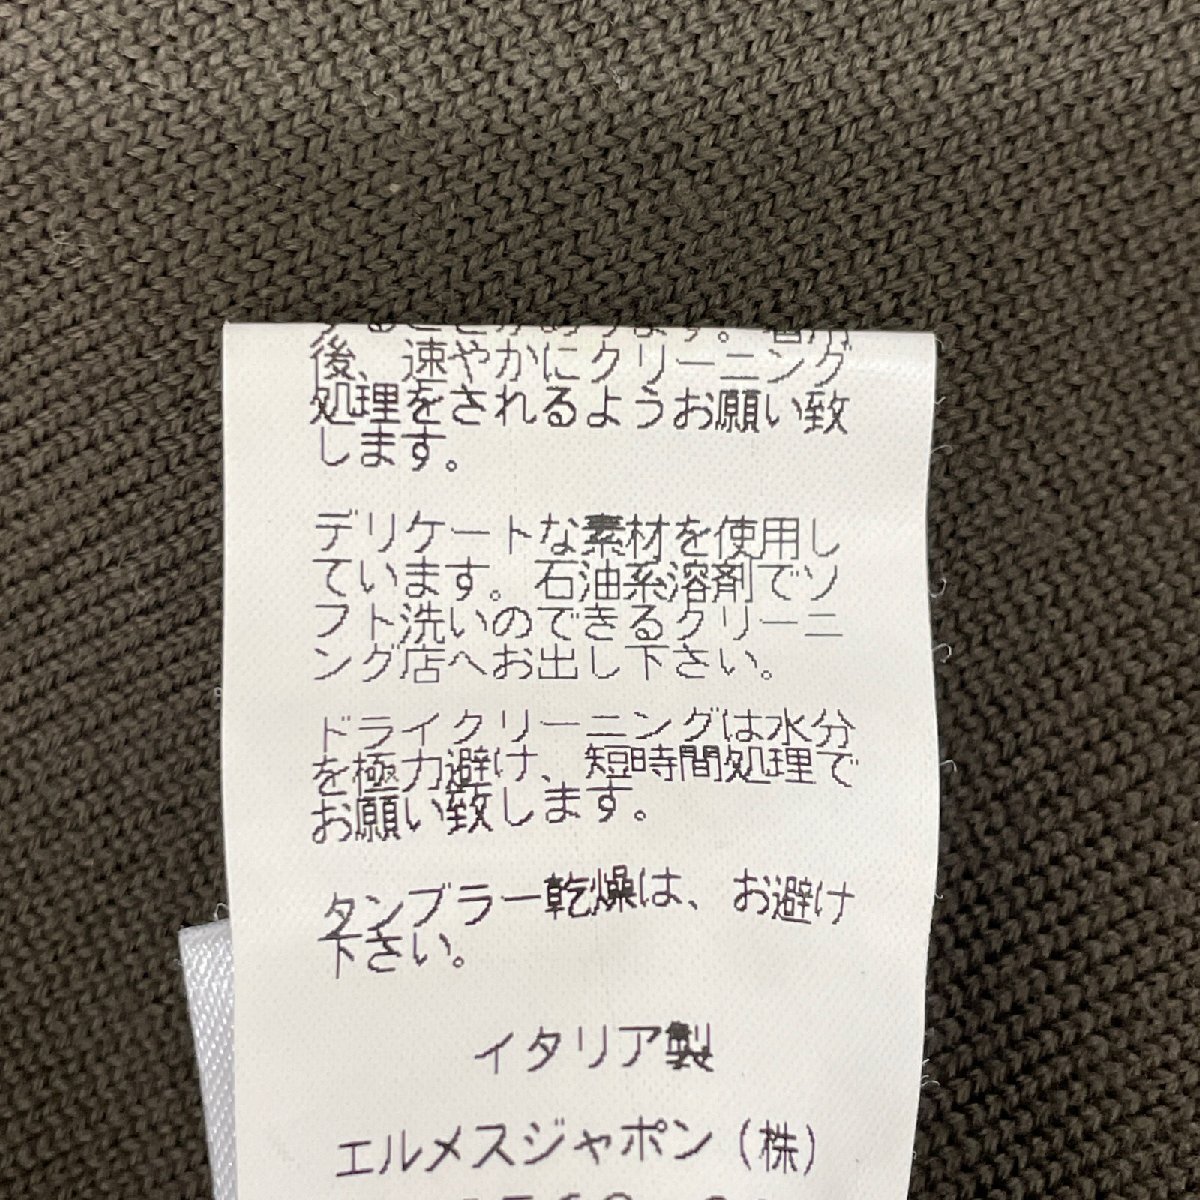 後、速やかにクリーニング
処理をされるようお願い致
します。
デリケートな素材を使用し
ています。石油系溶剤でソ
フト洗いのできるクリーニ
ング店へお出し下さい。
ドライクリーニングは水分
を極力避け、短時間処理で
お願い致します。
タンブラー乾燥は、お避け
下さい。
イタリア製
エルメスジャポン(株)